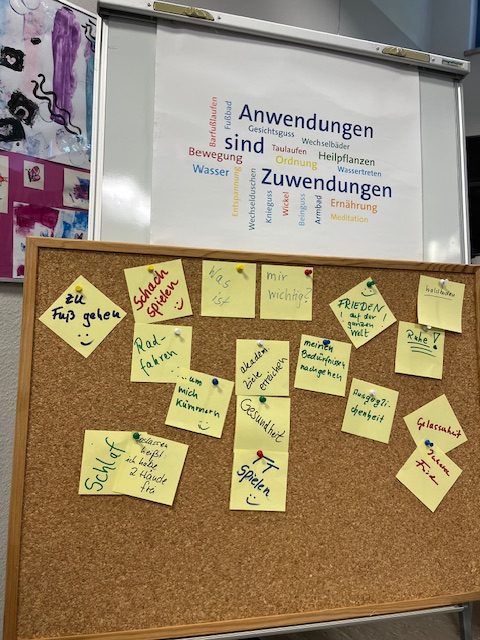 Anwendungen
sind
Zuwendungen
Barfußlaufen
Fußbad
Gesichtsguss
Wechselbäder
Taulaufen
Heilpflanzen
Bewegung
Ordnung
Wassertreten
Wasser
Entspannung
Wechselduschen
Knieguss
Wickel
Beinguss
Armbad
Ernährung
Meditation
zu
Fuß gehen
Schach
spielen
Was
ist
mir
wichtig?
FRIEDEN!
auf der
ganzen
Welt
Ruhe!
Rad-
fahren
um
mich
kümmern
akadem.
Ziele
erreichen
meinen
Bedürfnissen
nachgehen
Ausgegli-
chenheit
Gesundheit
Gelassenheit
Innere
Schlaf
heißt
ich habe
2 Hände
frei
TT
spielen